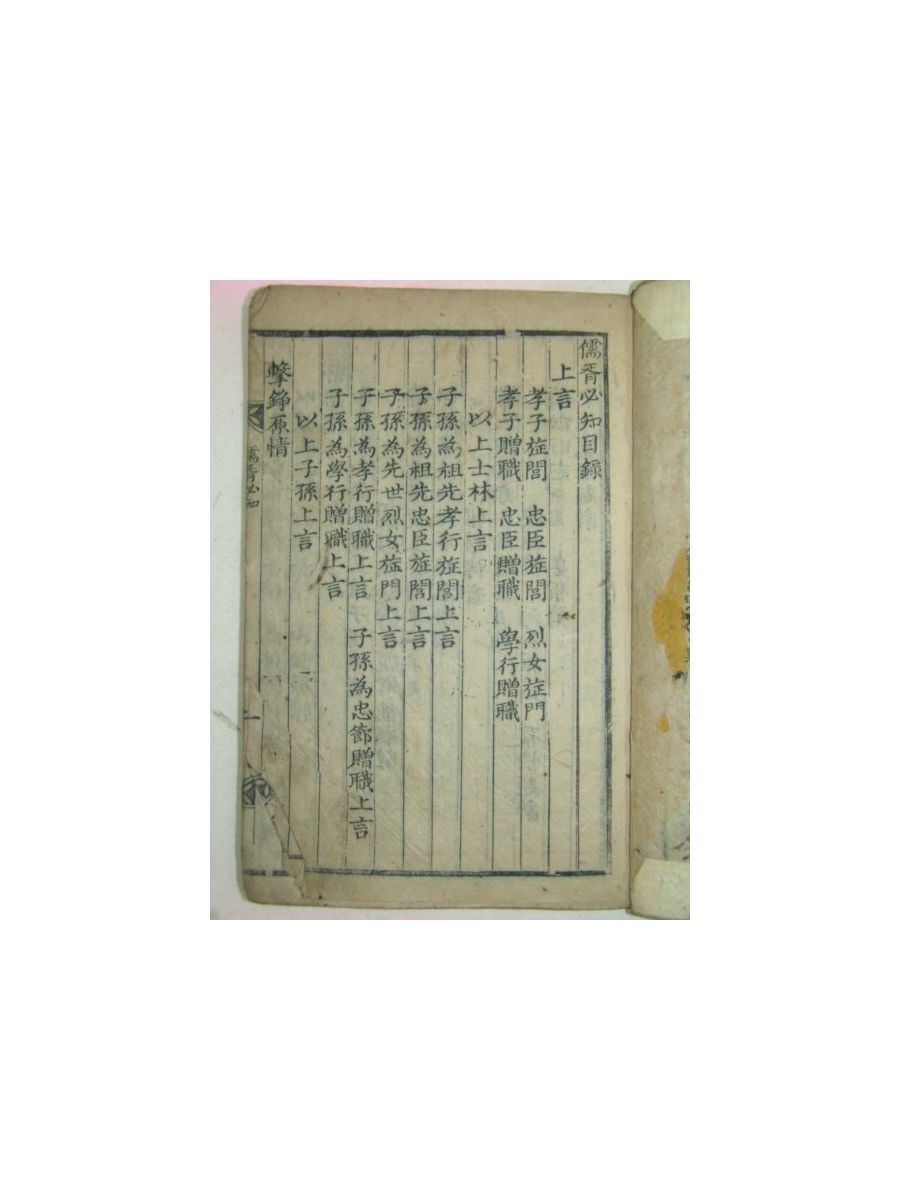 儒胥必知目錄
上言
孝子旌閭 忠臣旌閭 烈女旌門
孝子贈職 忠臣贈職 學行贈職
以上士林上言
子孫為祖先孝行旌閭上言
子孫為祖先忠臣旌閭上言
子孫為先世烈女旌門上言
子孫為孝行贈職上言 子孫為忠節贈職上言
子孫為學行贈職上言
以上子孫上言
擊錚原情
儒胥必知
一